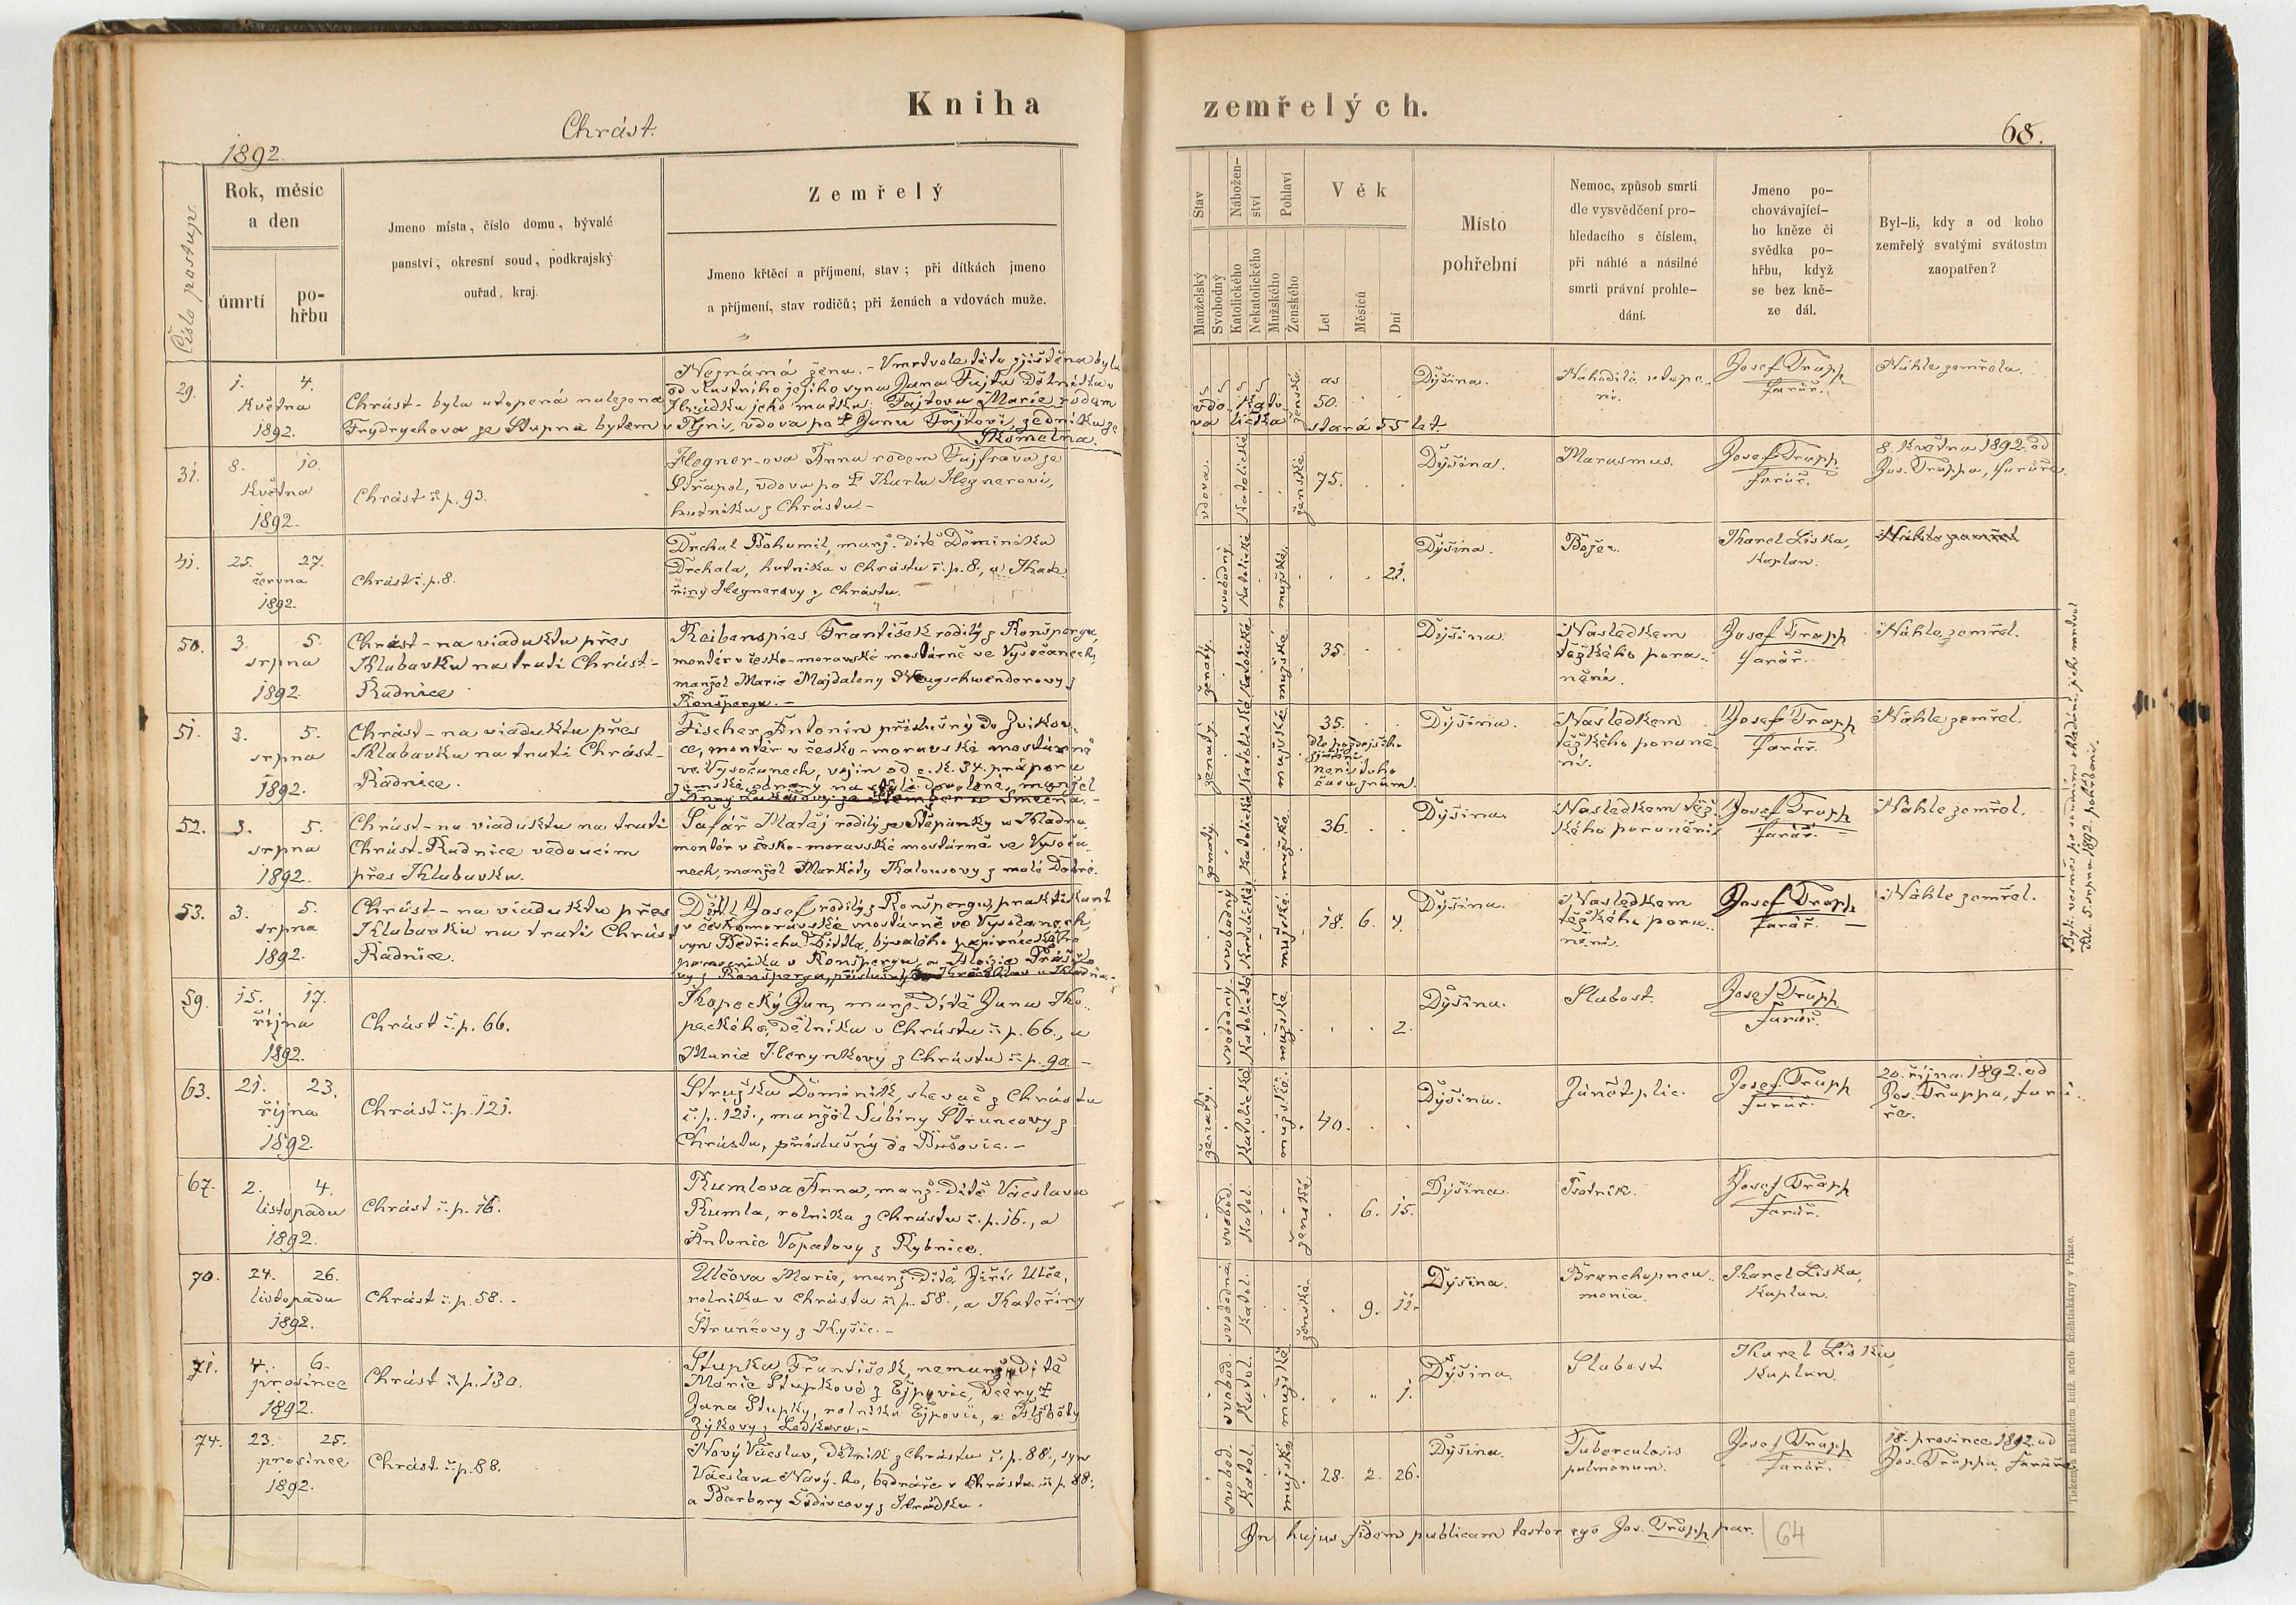 Kniha
Chrást.
1892.
Číslo postup.
Rok, měsíc
a den
úmrtí
po-
hřbu
Jmeno místa, číslo domu, bývalé
panství, okresní soud, podkrajský
ouřad, kraj.
Zemřelý
Jmeno křtěcí a příjmení, stav; při dítkách jmeno
a příjmení, stav rodičů; při ženách a vdovách muže.
29.
1. 4.
Května
1892.
Chrást - byla utopená nalezena
Frydrychova ze Stupna bytem
Neznámá žena. - V mrtvole této zjištěna byla
od vlastního jejího syna Jana Fajta dělníka
Hrádku jeho matka: Fajtova Marie rodem
v Týni, vdova po † Janu Fajtovi, zedníku ze
Kómetna.
31.
8. 10.
Května
1892.
Chrást č. p. 93.
Hegner-ova Anna rodem Fajfrova ze
Střapol, vdova po † Karlu Hegnerovi,
hudníku z Chrástu. -
41.
25. 27.
června
1892.
Chrást č. p. 8.
Drchal Bohumil, manž. dítě Dominika
Drchala, hutníka v Chrástu č. p. 8., a Kate
řiny Hegnerovy z Chrástu.
50.
3. 5.
srpna
1892.
Chrást - na viaduktu přes
Klabavku na trati Chrást -
Radnice
Reibenspies František rodilý z Ronšpergu,
montér v česko-moravské mostárně ve Vysočanech,
manžel Marie Majdaleny Neugschwenderovy z
Ronšpergu. -
51.
3. 5.
srpna
1892.
Chrást - na viaduktu přes
Klabavku na trati Chrást -
Radnice.
Fischer Antonín příslušný do Zvíkov
ce, montér v česko-moravské mostárně
ve Vysočanech, vojín od c. k. 34. praporu
zemské obrany na dovolené, manžel
Anny Lukešovy ze Smečna. -
52.
3. 5.
srpna
1892.
Chrást - na viaduktu na trati
Chrást-Radnice vedoucím
přes Klabavku.
Šafář Matěj rodilý ze Štěpánky u Kladna
montér v česko-moravské mostárně ve Vysoča
nech, manžel Markéty Kalousovy z malé Dobré.
53.
3. 5.
srpna
1892.
Chrást - na viaduktu přes
Klabavku na trati Chrást
Radnice.
Dittl Josef rodilý z Ronšpergu, praktikant
v českomoravské mostárně ve Vysočanech,
syn Bedřicha Dittla, bývalého
v Ronšpergu, a Aloisie
vy z Ronšpergu, příslušný do u Kladna. -
59.
15. 17.
října
1892.
Chrást č. p. 66.
Kopecký Jan, manž. dítě Jana Ko
peckého, dělníka v Chrástu č. p. 66., a
Marie Herynkovy z Chrástu č. p. 90. -
63.
21. 23.
října
1892.
Chrást č. p. 121.
Stružka Dominik, slevač z Chrástu
č. p. 121., manžel Sabiny Štruncovy z
Chrástu, příslušný do Bušovic. -
67.
2. 4.
listopadu
1892.
Chrást č. p. 16.
Rumlova Anna, manž. dítě Václava
Rumla, rolníka z Chrástu č. p. 16., a
Antonie Vopatovy z Rybnice.
70.
24. 26.
listopadu
1892.
Chrást č. p. 58. -
Ulčova Marie, manž. dítě Jiřího Ulče,
rolníka v Chrástu č. p. 58., a Kateřiny
Štruncovy z Kyšic. -
71.
4. 6.
prosince
1892.
Chrást č. p. 130.
Stupka František, nemanž. dítě
Marie Stupkové z Ejpovic, dcery †
Jana Stupky, rolníka Ejpovic, a Alžběty
Zýkovy z Letkova. -
74.
23. 25.
prosince
1892.
Chrást č. p. 88.
Nový Václav, dělník z Chrástu č. p. 88., syn
Václava Nový-ho, bednáře v Chrástu č. p. 88.,
a Barbory Šedivcovy z Hrádku.
zemřelých.
68.
Stav
Nábožen-
ství
Pohlaví
Věk
Manželský
Svobodný
Katolického
Nekatolického
Mužského
Ženského
Let
Měsíců
Dní
Místo
pohřební
Nemoc, způsob smrti
dle vysvědčení pro-
hledacího s číslem,
při náhlé a násilné
smrti právní prohle-
dání.
Jmeno po-
chovávající-
ho kněze či
svědka po-
hřbu, když
se bez kně-
ze dál.
Byl-li, kdy a od koho
zemřelý svatými svátostm
zaopatřen?
vdo
va
kato
lická
ženské
as
50.
stará 55 let.
Dýšina.
Nahodilé utope..
ní.
Josef Trapp
farář.
Náhle zemřela.
vdova.
Katolické
ženské.
75.
Dýšina.
Marasmus.
Josef Trapp
farář.
8. Května 1892. od
Jos. Trappa, faráře.
svobodný
Katolické
mužské.
21.
Dýšina.
Božec.
Karel Liska,
Kaplan.
Náhle zemřel
ženatý.
Katolické
mužské
35.
Dýšina.
Následkem
těžkého pora..
nění.
Josef Trapp
farář.
Náhle zemřel.
ženatý.
Katolické
mužské
35.
dle pozdejšího
zjištění
není toho
času znám.
Dýšina.
Následkem
těžkého poraně
ní.
Josef Trapp
farář.
Náhle zemřel.
ženatý.
Katolické
mužské
36.
Dýšina.
Následkem těž
kého poranění
Josef Trapp
farář.
Náhle zemřel.
svobodný
Katolické
mužské
18. 6. 4.
Dýšina.
Následkem
těžkého pora..
nění.
Josef Trapp
farář.
Náhle zemřel.
svobodný
Katolické
mužské
2.
Dýšina.
Slabost.
Josef Trapp
farář.
ženatý.
Katolické
mužské.
40.
Dýšina.
Zánět plic.
Josef Trapp
farář.
20. října 1892. od
Jos. Trappa, fará..
ře.
svobod.
Katol.
ženské.
6. 15.
Dýšina.
Psotník.
Josef Trapp
farář.
svobodná
Katol.
ženské.
9. 12.
Dýšina.
Bronchopneu..
monia.
Karel Liska,
Kaplan.
svobod.
Katol.
mužské
1.
Dýšina.
Slabost
Karel Liska,
Kaplan.
svobod.
Katol.
mužské
28. 2. 26.
Dýšina.
Tuberculosis
pulmonum.
Josef Trapp
farář.
18. prosince 1892. od
Jos. Trappa, faráře
In hujus fidem publicam testor ego Jos. Trapp par.
64
dne 5. srpna 1892. pohřbeni.
Tiskem a nákladem kníž. arcib. knihtiskárny v Praze.